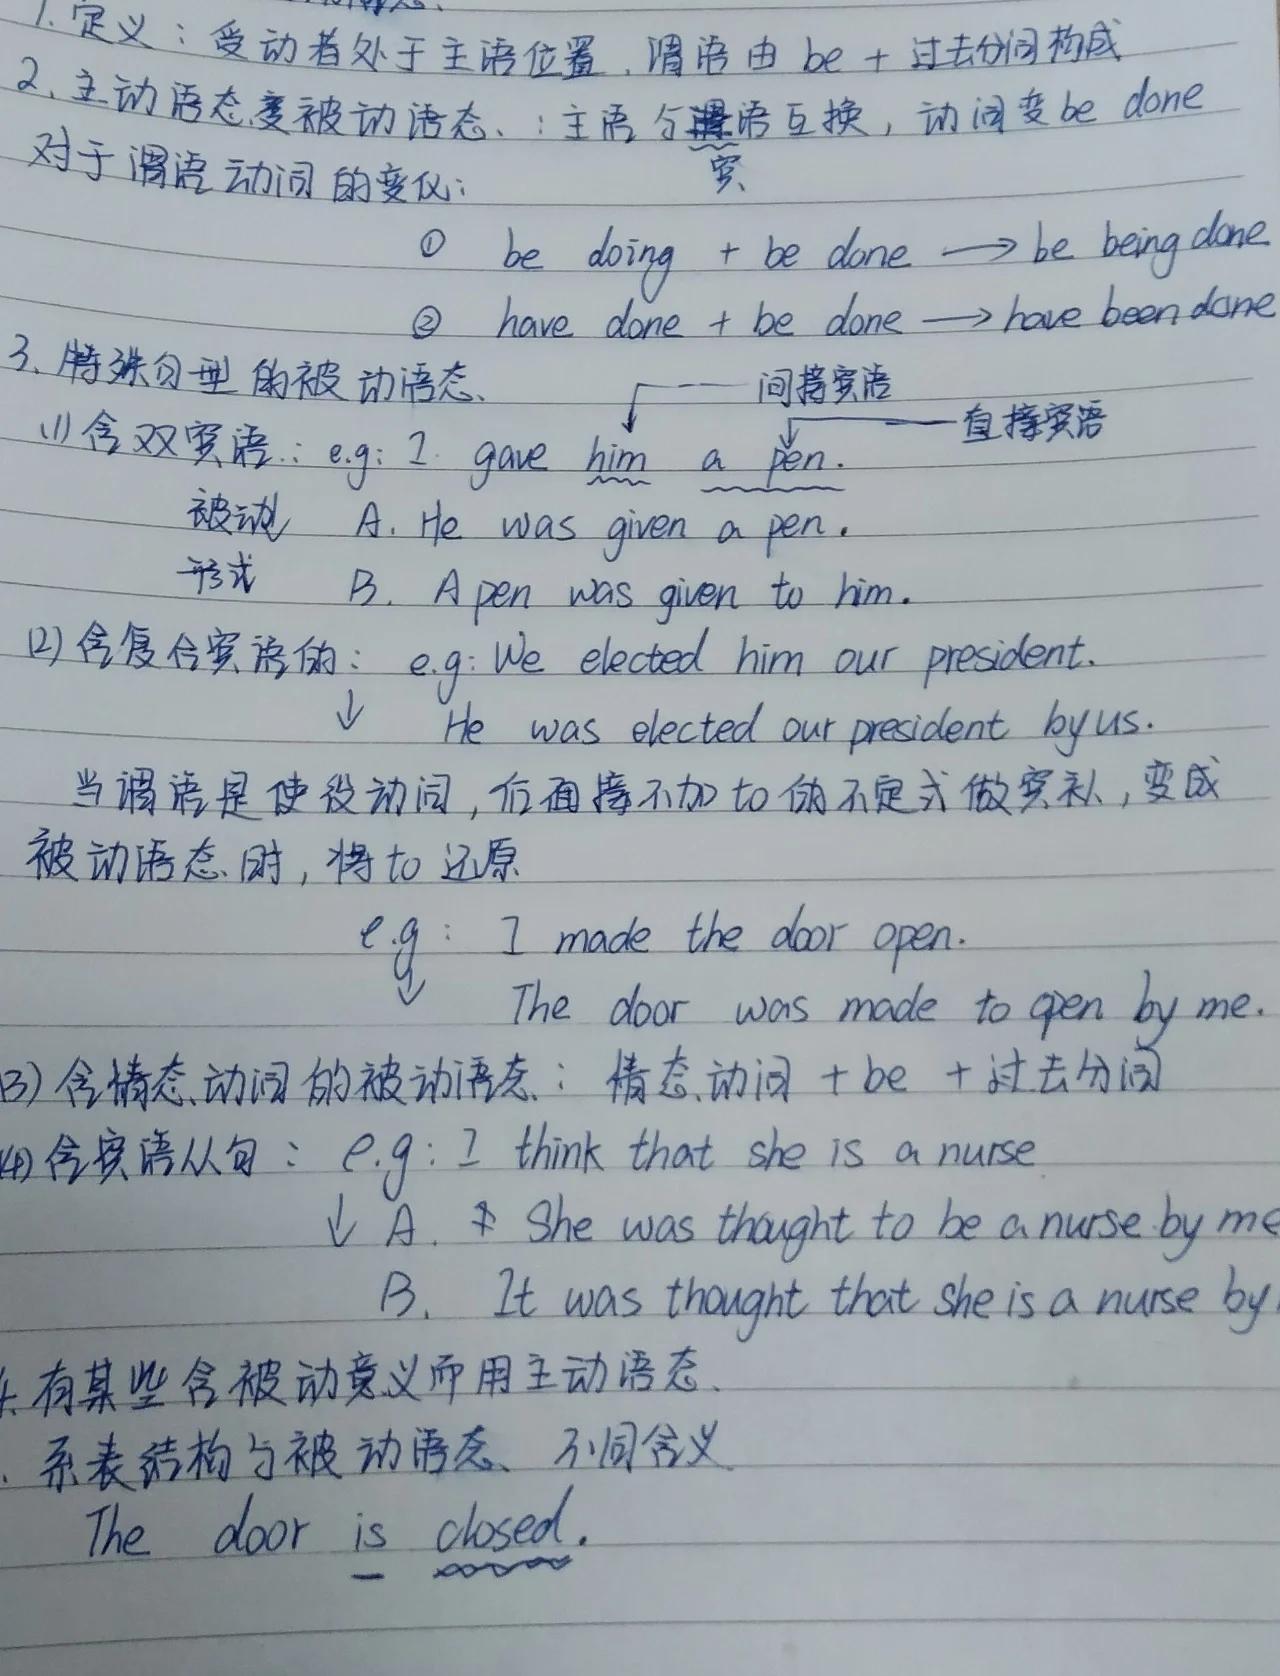 1. 定义：受动者处于主语位置，谓语由 be + 过去分词构成
2. 主动语态变被动语态：主语与宾语互换，动词变 be done
对于谓语动词的变化：
① be doing + be done → be being done
② have done + be done → have been done
3. 特殊句型的被动语态
间接宾语
直接宾语
(1) 含双宾语：e.g: I gave him a pen.
被动形式 A. He was given a pen.
B. A pen was given to him.
(2) 含复合宾语的：e.g: We elected him our president.
↓ He was elected our president by us.
当谓语是使役动词，后面接不加to的不定式做宾补，变成
被动语态时，将to还原
e.g: I made the door open.
↓ The door was made to open by me.
(3) 含情态动词的被动语态：情态动词 + be + 过去分词
(4) 含宾语从句：e.g: I think that she is a nurse
↓ A. She was thought to be a nurse by me
B. It was thought that she is a nurse by
4. 有某些含被动意义而用主动语态
系表结构与被动语态 不同含义
The door is closed.